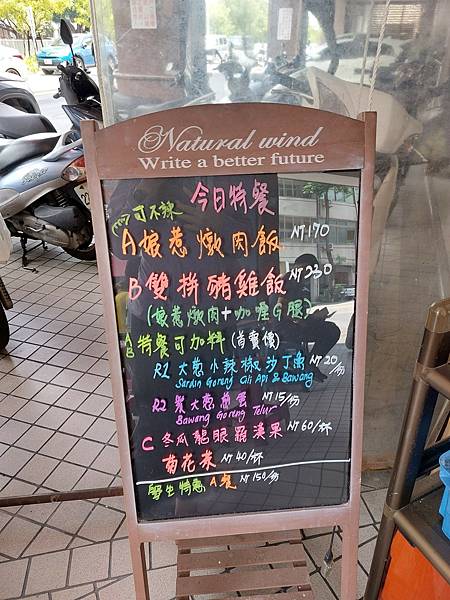 Natural wind
Write a better future
今日特餐
可不辣
A娘惹燉肉飯 NT170
B雙拼豬雞飯 NT230
(娘惹燉肉+咖哩G腿)
AB特餐可加料(首賣價)
R1 大蔥小辣椒沙丁魚 NT20/份
Sardin Goreng Cili Api & Bawang
R2 大蔥煎蛋 NT15/份
Bawang Goreng Telur
C 冬瓜龍眼羅漢果 NT60/杯
菊花茶 NT40/杯
學生特惠 A餐 NT150/份